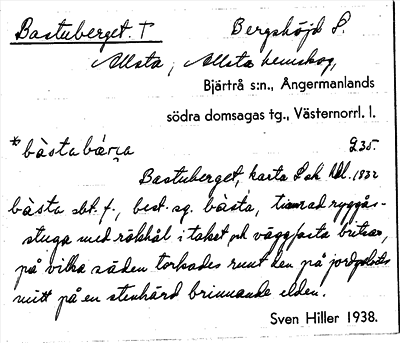 Bastuberget. T Bergshöjd S.
Allsta, Allsta hemskog,
Bjärtrå s:n., Ångermanlands
södra domsagas tg., Västernorrl. l.
*bàstabár̨a 935.
Bastuberget, karta Lsk 1832
bàsta sbt. f., best. sg. bàsta, timrad ryggås-
stuga med rökhål i taket och väggfasta britsar,
på vilka säden torkades runt den på jordgolvets
mitt på en stenhärd brinnande elden.
Sven Hiller 1938.